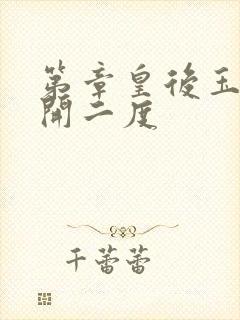 第章皇後玉
開二度
千蕾蕾